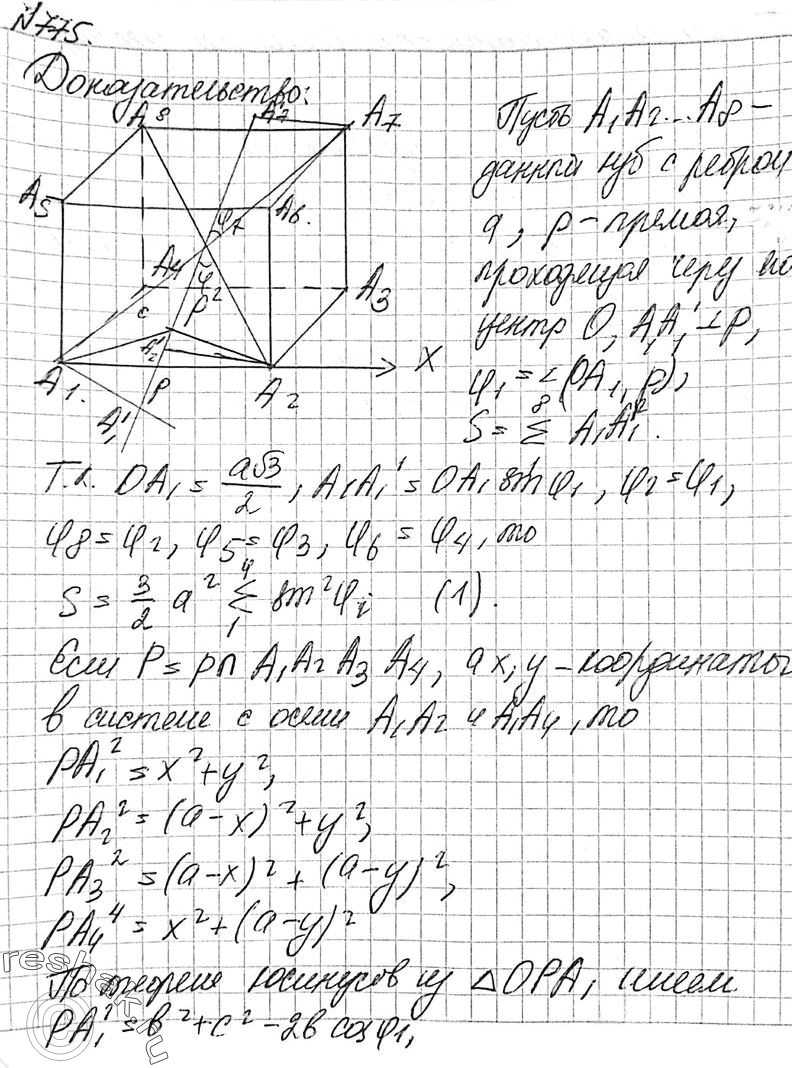 №775.
Доказательство:
A8 A7' A7
A5 A6.
φ7
A4 φ
A3
c P 2
A2'
A1. P A2 X
A1'
Пусть A1A2...A8 –
данный куб с ребром
a, p – прямая,
проходящая через его
центр O, A1A1' ⊥ p,
φ1 = ∠(OA1, p),
S = Σ⁸ A1A1'².
Т.к. OA1 = a√3/2, A1A1' = OA1 sin φ1, φ7 = φ1,
φ8 = φ2, φ5 = φ3, φ6 = φ4, то
S = 3/2 a² Σ₁⁴ sin²φi (1).
Если P = p∩A1A2A3A4, а x, y – координаты
в системе с осями A1A2 и A1A4, то
PA1² = x² + y²,
PA2² = (a-x)² + y²,
PA3² = (a-x)² + (a-y)²,
PA4⁴ = x² + (a-y)²
По теореме косинусов из △OPA1 имеем
PA1² = b² + c² - 2b cos φ1,
reshak.ru